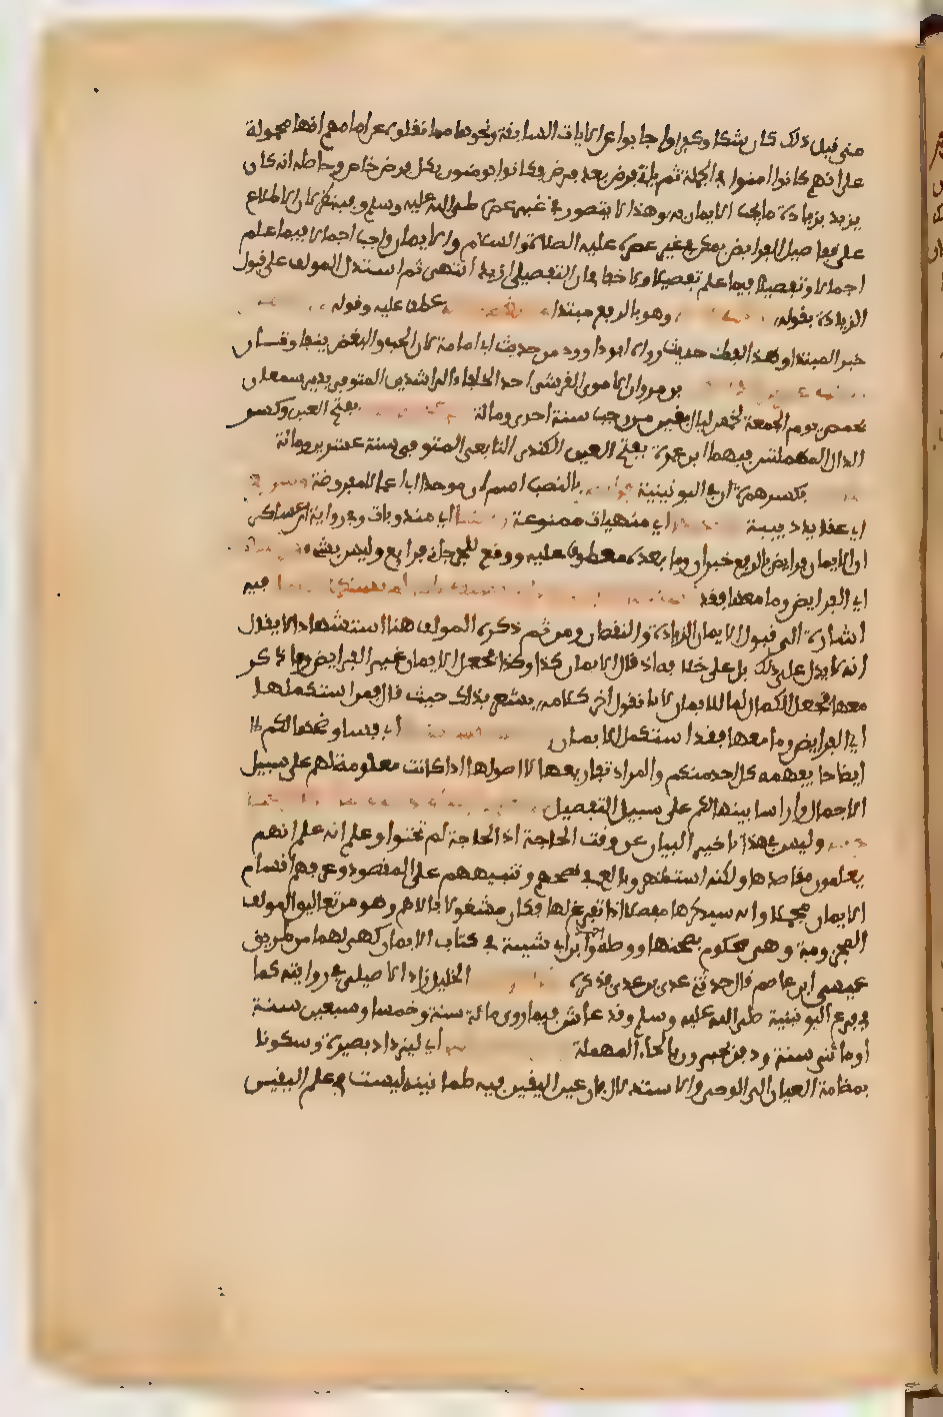 متى قبل ذلك كان شكا وكفرا واجابوا عن الايات السابقة ونحوها مما نقلوه عن امامهم انها محمولة
على انهم كانوا امنوا في الجملة ثم ياتي فرض بعد فرض وكانوا يومنون بكل فرض خاص وحاصله انه كان
يزيد بزيادة ما يجب الايمان به وهذا لا يتصور في غير عصره صلى الله عليه وسلم وفيه نظر لان الاطلاع
على تفاصيل الفرايض يمكن في غير عصره عليه الصلاة والسلام والايمان واجب اجمالا فيما علم
اجمالا وتفصيلا فيما علم تفصيلا ولا خفا في ان التفصيلي ازيد انتهى ثم استدل المولف على قبول
الزيادة بقوله وهو بالرفع مبتدا عطف عليه وقوله
خبر المبتدا وهذا اللفظ حديث رواه ابو داوود من حديث ابي امامة لان الحب والبغض يتفاوتان
بن مروان الاموي القرشي احد الخلفاء الراشدين المتوفى بدير سمعان
بحمص يوم الجمعة لخمس ليال بقين من رجب سنة احدى ومائة بفتح العين وكسر
الدال المهملتين فيهما ابن عميرة بفتح العين الكندي التابعي المتوفى سنة عشرين ومائة
بكسر همزة ان في اليونينية بالنصب اسم ان موخر اي اعمالا مفروضة
اي عقايد دينية اي منهيات ممنوعة اي مندوبات وفي رواية ابن عساكر
ان الايمان فرايض بالرفع خبر ان وما بعده معطوف عليه ووقع للجرجاني فرايع وليس بشيء
اي الفرايض وما معها فقد فيه
اشارة الى قبول الايمان الزيادة والنقصان ومن ثم ذكره المولف هنا استشهادا لا يقال
انه لا يدل على ذلك بل على خلافه اذ قال الايمان كذا وكذا فجعل الايمان غير الفرايض وما ذكر
معها فجعل الكمال لما للايمان لانا نقول اخر كلامه يشعر بذلك حيث قال فمن استكملها
اي الفرايض وما معها فقد استكمل الايمان اي فساوضحها لكم
ايضاحا يفهمه كل احد منكم والمراد تفاريعها لا اصولها اذ كانت معلومة لهم على سبيل
الاجمال واراد سابينها لكم على سبيل التفصيل
وليس في هذا تاخير البيان عن وقت الحاجة اذ الحاجة لم تتحقق او علم انه علم انهم
يعلمون مقاصدها ولكنه استظهر وبالغ في نصحهم وتنبيههم على المقصود وعرفهم اقسام
الايمان مجملا وانه سيذكرها مفصلا اذا تفرغ لها فكان مشغولا بالاهم وهو من تعاليق المولف
المجزومة وهي محكوم بصحتها ووصله احمد وابن ابي شيبة في كتاب الايمان لهما من طريق
عيسى ابن عاصم قال حدثني عدي بن عدي فذكره الخليل زاد الاصيلي في روايته كما
في فرع اليونينية صلى الله عليه وسلم وقد عاش فيما روي مائة سنة وخمسا وسبعين سنة
او مائتي سنة ودفن بحبرون بالحاء المهملة اي ليزداد بصيرة وسكونا
بمضامة العيان الى الوحي والاستدلال فان عين اليقين فيه طمانينة ليست في علم اليقين